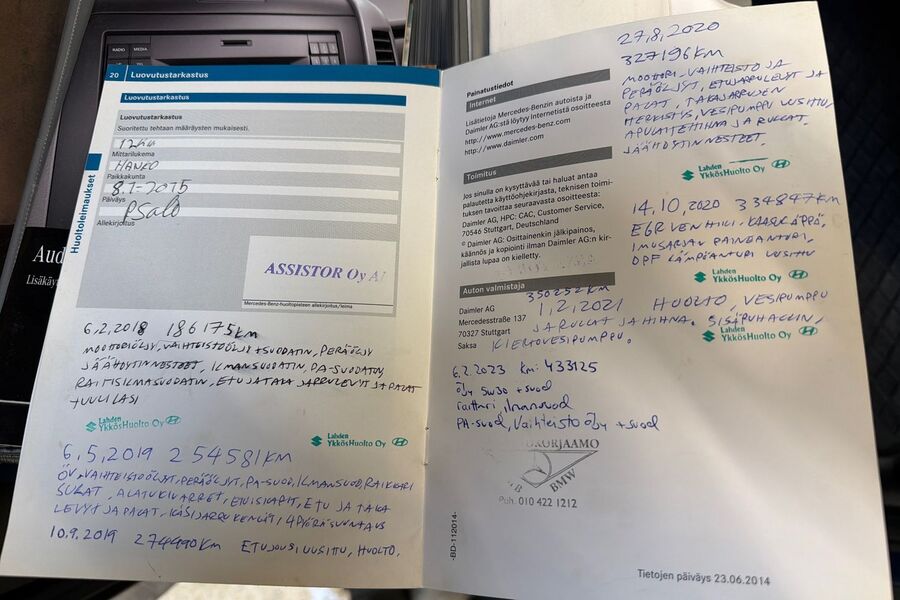 RADIO MEDIA
20 Luovutustarkastus
Luovutustarkastus
Luovutustarkastus
Suoritettu tehtaan määräysten mukaisesti.
Mittarilukema
HANKO
Paikkakunta
8.1-2015
Päiväys
PSalo
Allekirjoitus
ASSISTOR Oy
Mercedes-Benz-huoltopisteen allekirjoitus/leima
Huoltoleimaukset
Aud
Lisäkäy
6.2.2018 186175KM
MOOTTORIÖLJY, VAIHTEISTOÖLJY+SUODATIN, PERÄÖLJY
JÄÄHDYTINNESTEET, ILMANSUODATIN, PA-SUODATIN,
RAITISILMASUODATIN, ETU JA TAKA JARRULEVYT JA PALAT
+TUULILASI
Lahden
YkkösHuolto Oy
Lahden
YkkösHuolto Oy
6.5.2019 254581KM
ÖV, VAIHTEISTOÖLJYT, PERÄÖLJYT, PA-SUOD, ILMANSUOD, RAIKKARI
SULAT, ALATUKIVARRET, ETUISKARIT, ETU JA TAKA
LEVYT JA PALAT, KÄSIJARRUKENGÄT, 4PYÖRÄSUUNTAUS
10.9.2019 274490KM ETUJOUSI UUSITTU, HUOLTO.
Painatustiedot
Internet
Lisätietoja Mercedes-Benzin autoista ja
Daimler AG:stä löytyy Internetistä osoitteesta
http://www.mercedes-benz.com
http://www.daimler.com
Toimitus
Jos sinulla on kysyttävää tai haluat antaa
palautetta käyttöohjekirjasta, teknisen toimi-
tuksen tavoittaa seuraavasta osoitteesta:
Daimler AG, HPC: CAC, Customer Service,
70546 Stuttgart, Deutschland
© Daimler AG: Osittainenkin jälkipainos,
käännös ja kopiointi ilman Daimler AG:n kir-
jallista lupaa on kielletty.
Auton valmistaja
Daimler AG
Mercedesstraße 137
70327 Stuttgart
Saksa
27,8,2020
327196KM
MOOTTORI-VAIHTEISTO JA
PERÄÖLJYT, ETUJARRULEVYT JA
PALAT, TAKAJARRUJEN
HERKISTYS, VESIPUMPPU UUSITTU
APULAITEHIHNA JA RULLAT.
JÄÄHDYTINNESTEET.
Lahden
YkkösHuolto Oy
14,10,2020 334847KM
EGR VENTTIILI
IMUSARJAN PAINEANTURI,
DPF LÄMPÖANTURI UUSITTU
Lahden
YkkösHuolto Oy
350252KM
1,2,2021 HUOLTO, VESIPUMPPU
JA RULLAT JA HIHNA. SISÄPUHALLIN,
KIERTOVESIPUMPPU.
Lahden
YkkösHuolto Oy
6.2.2023 km: 433125
Öljy 5W30 +suod
raittari, ilmansuod
PA-suod, Vaihteisto öljy +suod
KORJAAMO
BMW
Puh. 010 422 1212
-BD-112014-
Tietojen päiväys 23.06.2014